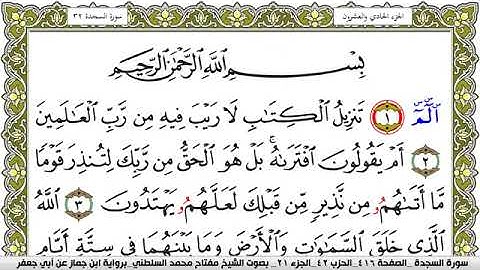 سورة السجدة ٣٢
الجزء الحادي والعشرون
بِسْمِ اللَّهِ الرَّحْمَٰنِ الرَّحِيمِ
الٓمٓ ١ تَنزِيلُ الْكِتَابِ لَا رَيْبَ فِيهِ مِن رَّبِّ الْعَالَمِينَ
٢ أَمْ يَقُولُونَ افْتَرَاهُ بَلْ هُوَ الْحَقُّ مِن رَّبِّكَ لِتُنذِرَ قَوْمًا
مَّا أَتَاهُمُو مِن نَّذِيرٍ مِّن قَبْلِكَ لَعَلَّهُمُو يَهْتَدُونَ ٣ اللَّهُ
الَّذِي خَلَقَ السَّمَٰوَٰتِ وَالْأَرْضَ وَمَا بَيْنَهُمَا فِي سِتَّةِ أَيَّامٍ
سورة السجدة _الصفحة ٤١٦_الحزب 42_الجزء ٢١_ بصوت الشيخ مفتاح محمد السلطني_برواية ابن جماز عن أبي جعفر